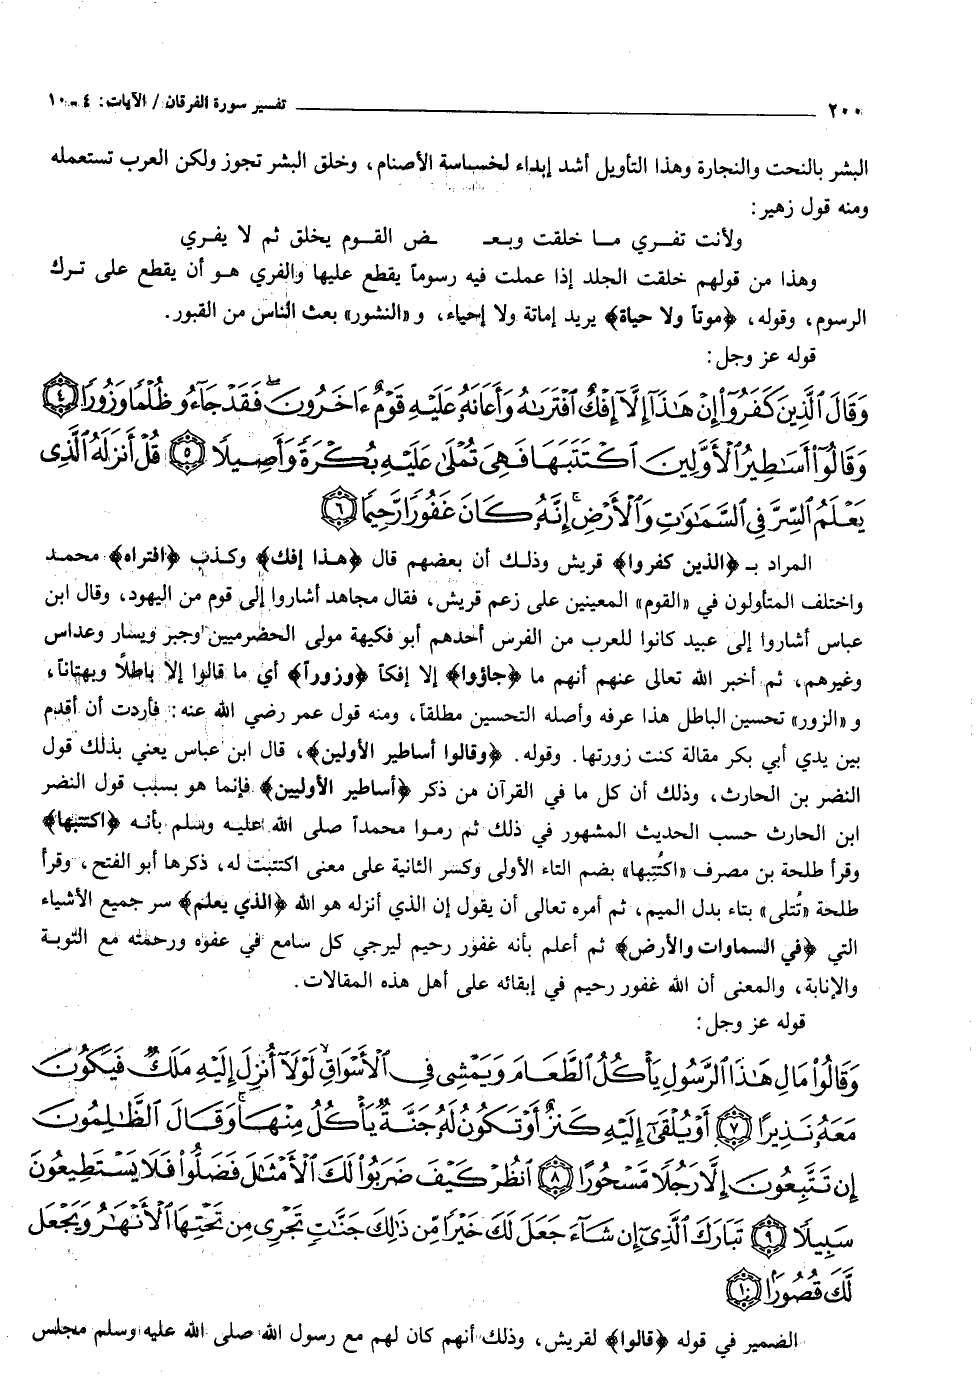 ٢٠٠ تفسير سورة الفرقان / الآيات: ٤ - ١٠
البشر بالنحت والنجارة وهذا التأويل أشد إبداء لخساسة الأصنام، وخلق البشر تجوز ولكن العرب تستعمله
ومنه قول زهير:
ولأنت تفـري مـا خلقت وبعـ ـض القـوم يخلق ثم لا يفـري
وهذا من قولهم خلقت الجلد إذا عملت فيه رسوماً يقطع عليها والفري هـو أن يقطع على تـرك
الرسوم، وقوله، ﴿موتاً ولا حياة﴾ يريد إماتة ولا إحياء، و «النشور» بعث الناس من القبور.
قوله عز وجل:
وَقَالَ ٱلَّذِينَ كَفَرُوٓا۟ إِنْ هَـٰذَآ إِلَّآ إِفْكٌ ٱفْتَرَىٰهُ وَأَعَانَهُۥ عَلَيْهِ قَوْمٌ ءَاخَرُونَ ۖ فَقَدْ جَآءُو ظُلْمًا وَزُورًا ﴿٤﴾
وَقَالُوٓا۟ أَسَـٰطِيرُ ٱلْأَوَّلِينَ ٱكْتَتَبَهَا فَهِىَ تُمْلَىٰ عَلَيْهِ بُكْرَةً وَأَصِيلًا ﴿٥﴾ قُلْ أَنزَلَهُ ٱلَّذِى
يَعْلَمُ ٱلسِّرَّ فِى ٱلسَّمَـٰوَٰتِ وَٱلْأَرْضِ ۚ إِنَّهُۥ كَانَ غَفُورًا رَّحِيمًا ﴿٦﴾
المراد بـ ﴿الذين كفروا﴾ قريش وذلـك أن بعضهم قال ﴿هـذا إفك﴾ وكـذب ﴿افتراه﴾ محمـد
واختلف المتأولون في «القوم» المعينين على زعم قريش، فقال مجاهد أشاروا إلى قوم من اليهود، وقال ابن
عباس أشاروا إلى عبيد كانوا للعرب من الفرس أحدهم أبو فكيهة مولى الحضرميين وجبر ويسار وعداس
وغيرهم، ثم أخبر الله تعالى عنهم أنهم ما ﴿جاؤوا﴾ إلا إفكاً ﴿وزوراً﴾ أي ما قالوا إلا باطلًا وبهتاناً،
و «الزور» تحسين الباطل هذا عرفه وأصله التحسين مطلقاً، ومنه قول عمر رضي الله عنه: فأردت أن أقدم
بين يدي أبي بكر مقالة كنت زورتها. وقوله. ﴿وقالوا أساطير الأولين﴾، قال ابن عباس يعني بذلك قول
النضر بن الحارث، وذلك أن كل ما في القرآن من ذكر ﴿أساطير الأولين﴾ فإنما هو بسبب قول النضر
ابن الحارث حسب الحديث المشهور في ذلك ثم رمـوا محمداً صلى الله عليـه وسلم بأنـه ﴿اكتتبها﴾
وقرأ طلحة بن مصرف «اكتُتِبها» بضم التاء الأولى وكسر الثانية على معنى اكتتبت له، ذكرها أبو الفتح، وقرأ
طلحة «تُتلى» بتاء بدل الميم، ثم أمره تعالى أن يقول إن الذي أنزله هو الله ﴿الذي يعلم﴾ سر جميع الأشياء
التي ﴿في السماوات والأرض﴾ ثم أعلم بأنه غفور رحيم ليرجي كل سامع في عفوه ورحمته مع التوبـة
والإنابة، والمعنى أن الله غفور رحيم في إبقائه على أهل هذه المقالات.
قوله عز وجل:
وَقَالُوا۟ مَالِ هَـٰذَا ٱلرَّسُولِ يَأْكُلُ ٱلطَّعَامَ وَيَمْشِى فِى ٱلْأَسْوَاقِ ۙ لَوْلَآ أُنزِلَ إِلَيْهِ مَلَكٌ فَيَكُونَ
مَعَهُۥ نَذِيرًا ﴿٧﴾ أَوْ يُلْقَىٰٓ إِلَيْهِ كَنزٌ أَوْ تَكُونُ لَهُۥ جَنَّةٌ يَأْكُلُ مِنْهَا ۚ وَقَالَ ٱلظَّـٰلِمُونَ
إِن تَتَّبِعُونَ إِلَّا رَجُلًا مَّسْحُورًا ﴿٨﴾ ٱنظُرْ كَيْفَ ضَرَبُوا۟ لَكَ ٱلْأَمْثَـٰلَ فَضَلُّوا۟ فَلَا يَسْتَطِيعُونَ
سَبِيلًا ﴿٩﴾ تَبَارَكَ ٱلَّذِىٓ إِن شَآءَ جَعَلَ لَكَ خَيْرًا مِّن ذَٰلِكَ جَنَّـٰتٍ تَجْرِى مِن تَحْتِهَا ٱلْأَنْهَـٰرُ وَيَجْعَل
لَّكَ قُصُورًا ﴿١٠﴾
الضمير في قوله ﴿قالوا﴾ لقريش، وذلك أنهم كان لهم مع رسول الله صلى الله عليه وسلم مجلس